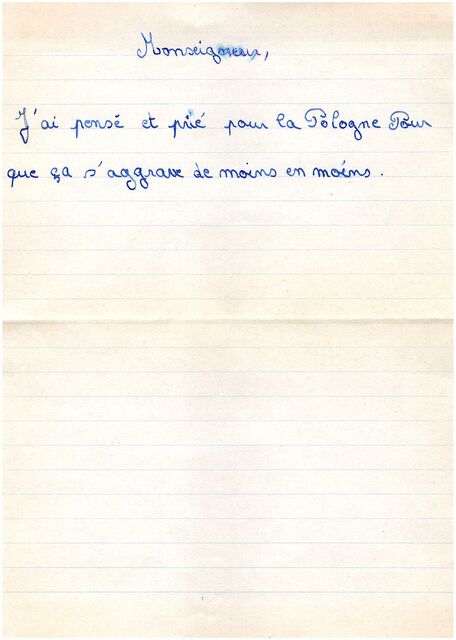 Monseigneur,
J'ai pensé et prié pour la Pologne Pour
que ça s'aggrave de moins en moins.